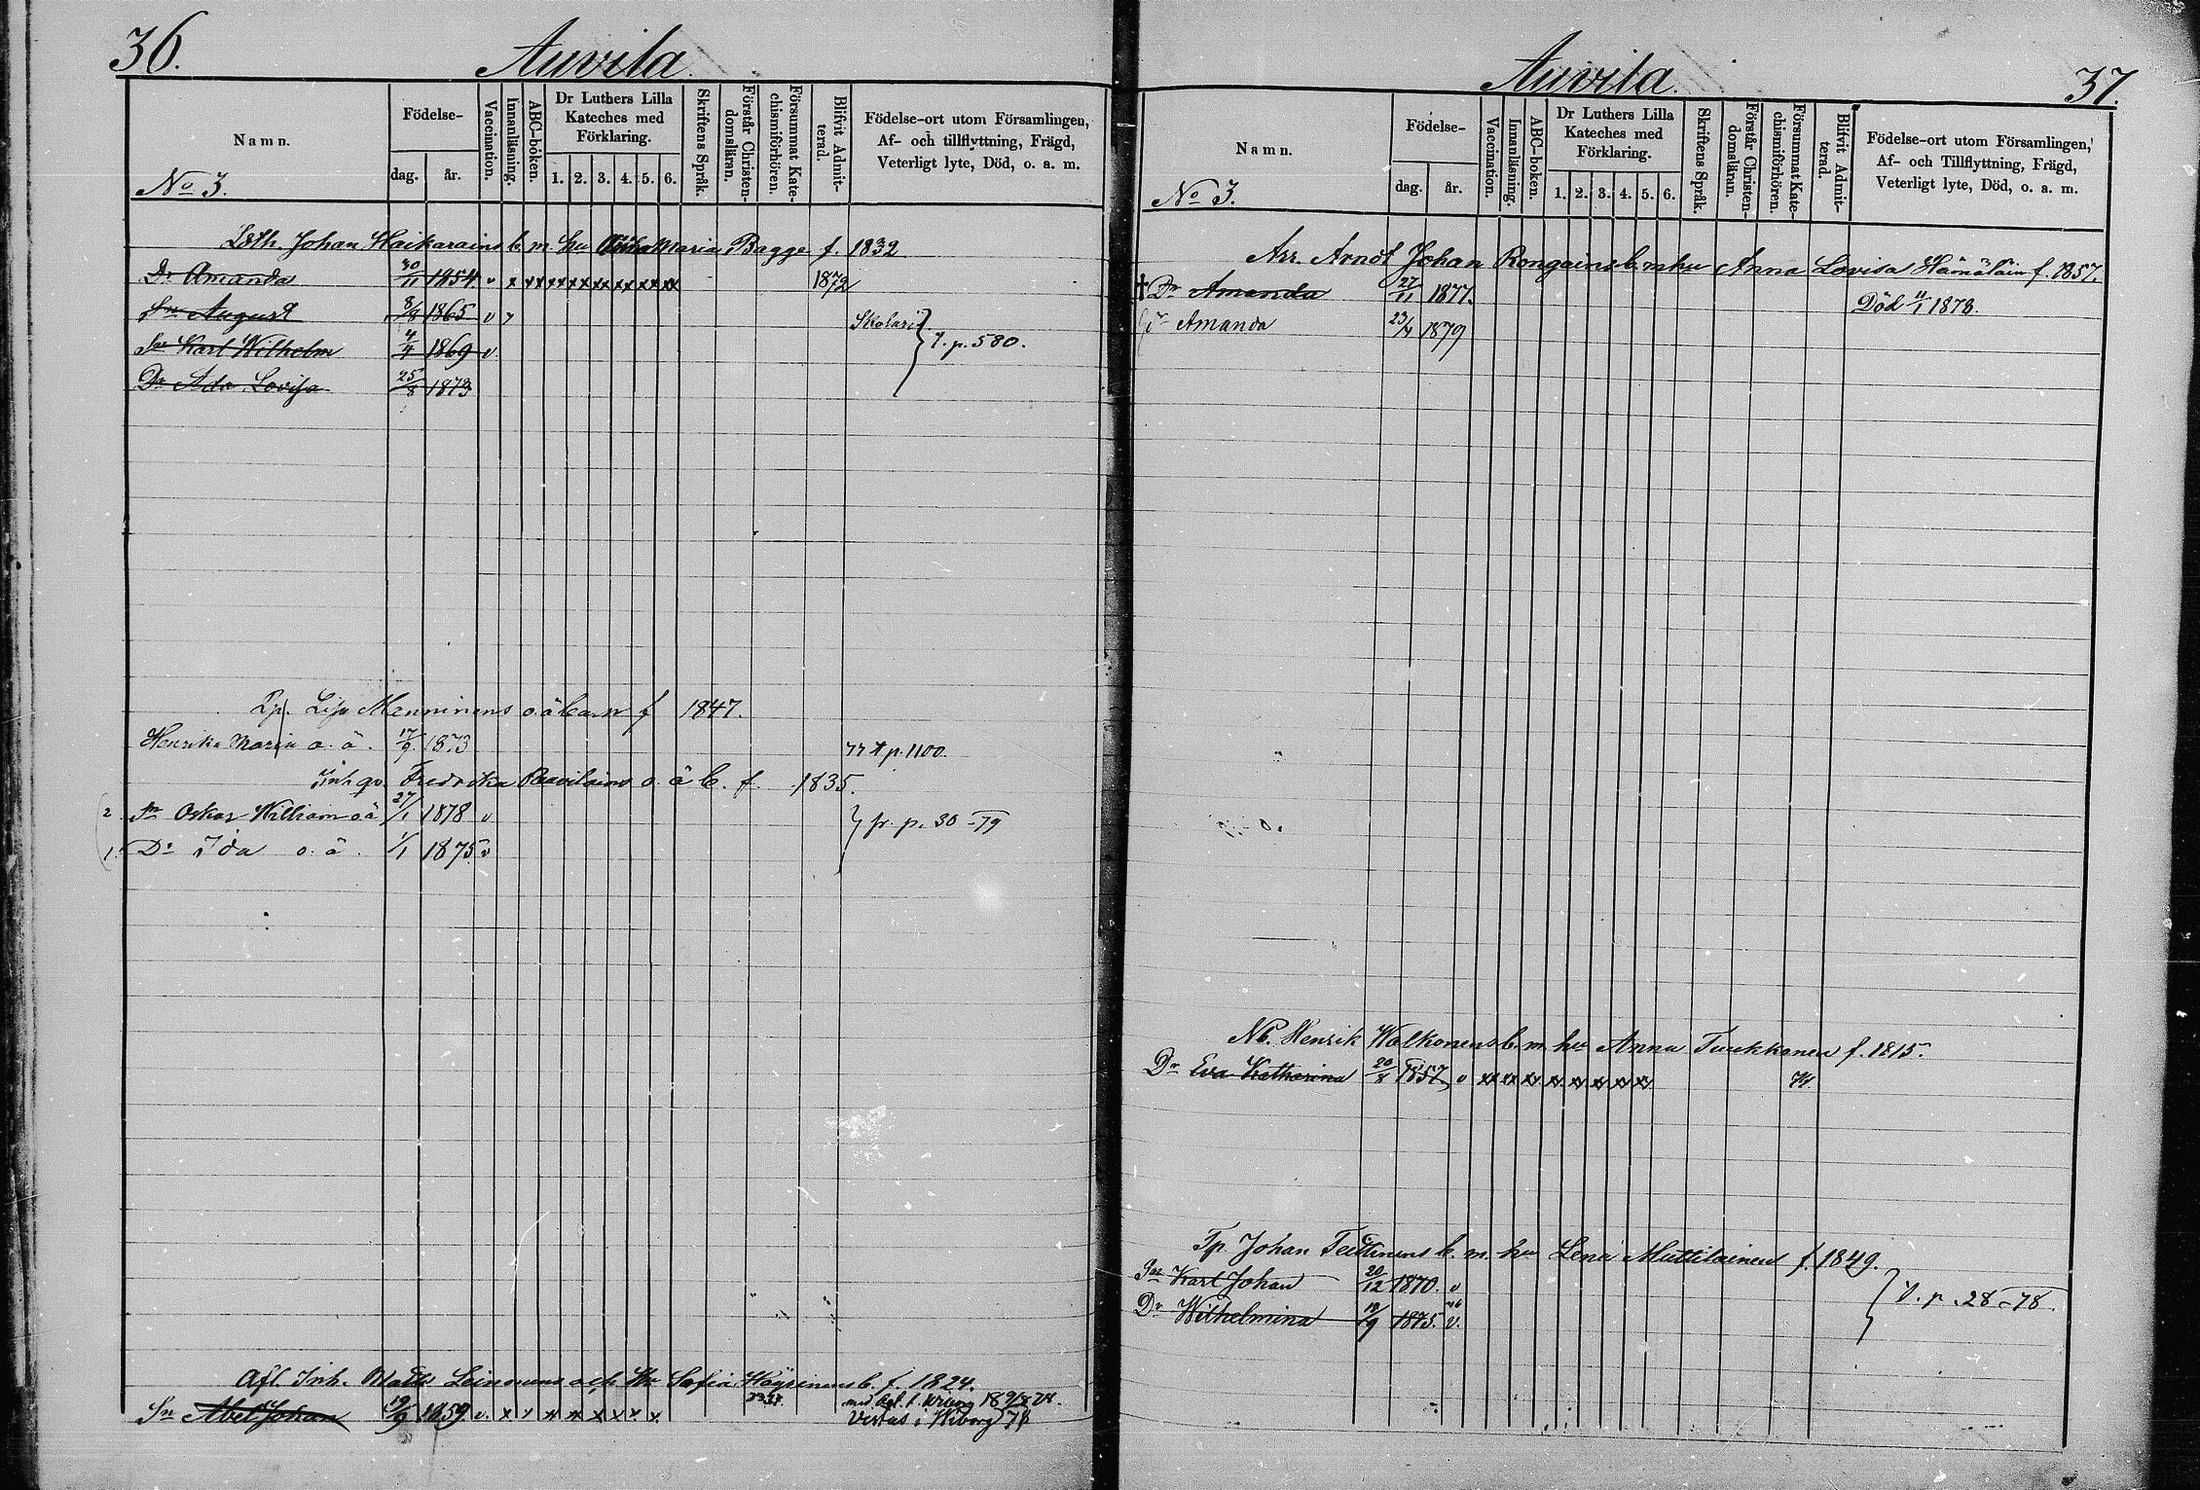 36.
Auvila
Namn.
Födelse-
dag.
år.
Vaccination.
Innanläsning.
ABC-boken.
Dr Luthers Lilla
Kateches med
Förklaring.
1. 2. 3. 4. 5. 6.
Skriftens Språk.
Förstår Christen-
domsläran.
Försummat Kate-
chismiförhören.
Blifvit Admit-
terad.
Födelse-ort utom Församlingen,
Af- och tillflyttning, Frägd,
Veterligt lyte, Död, o. a. m.
No 3.
Johan Haikarains b. m. hu Maria Bagge f. 1832
Dr Amanda 30/11 1854 v x xx xx xx xx xx xx xx 1872
Sn August 1865 v
Sn Karl Wilhelm 4/4 1869 v p. 580.
Dr Ada Lovisa 25/8 1873
Menninens o ä barn f 1847.
Henrika Maria o. ä. 17/9 1873 p. 1100.
Inh qv. Fredrika o ä b. f. 1835.
2 Sn Oskar William o ä 27/1 1878 v fr. p. 30 -79
1 Dr Ida o. ä. 1/1 1875 v
Afl. Inh. Leinonens och Hu Sofia b. f. 1824.
Sn Abel Johan 19/9 1859 v. x x x x x x x
Vistas i Wiborg 78
Auvila
37.
Namn.
Födelse-
dag.
år.
Vaccination.
Innanläsning.
ABC-boken.
Dr Luthers Lilla
Kateches med
Förklaring.
1. 2. 3. 4. 5. 6.
Skriftens Språk.
Förstår Christen-
domsläran.
Försummat Kate-
chismiförhören.
Blifvit Admit-
terad.
Födelse-ort utom Församlingen,
Af- och Tillflyttning, Frägd,
Veterligt lyte, Död, o. a. m.
No 3.
Arr. Johan Rongains b. m hu Anna Lovisa Hämäläin f. 1857.
† Dr Amanda 27/11 1877. Död 11/1 1878.
Amanda 23/4 1879
Henrik Walkonens b. m. hu Anna Turkkanen f. 1815.
Dr Eva Katharina 20/8 1857 v xx xx xx xx xx xx xx xx 74
Tp. Johan b. m. hu Lena Muttilainen f. 1849.
Sn Karl Johan 20/12 1870. v
Dr Wilhelmina 18/9 1875. v. p. 28 -78.